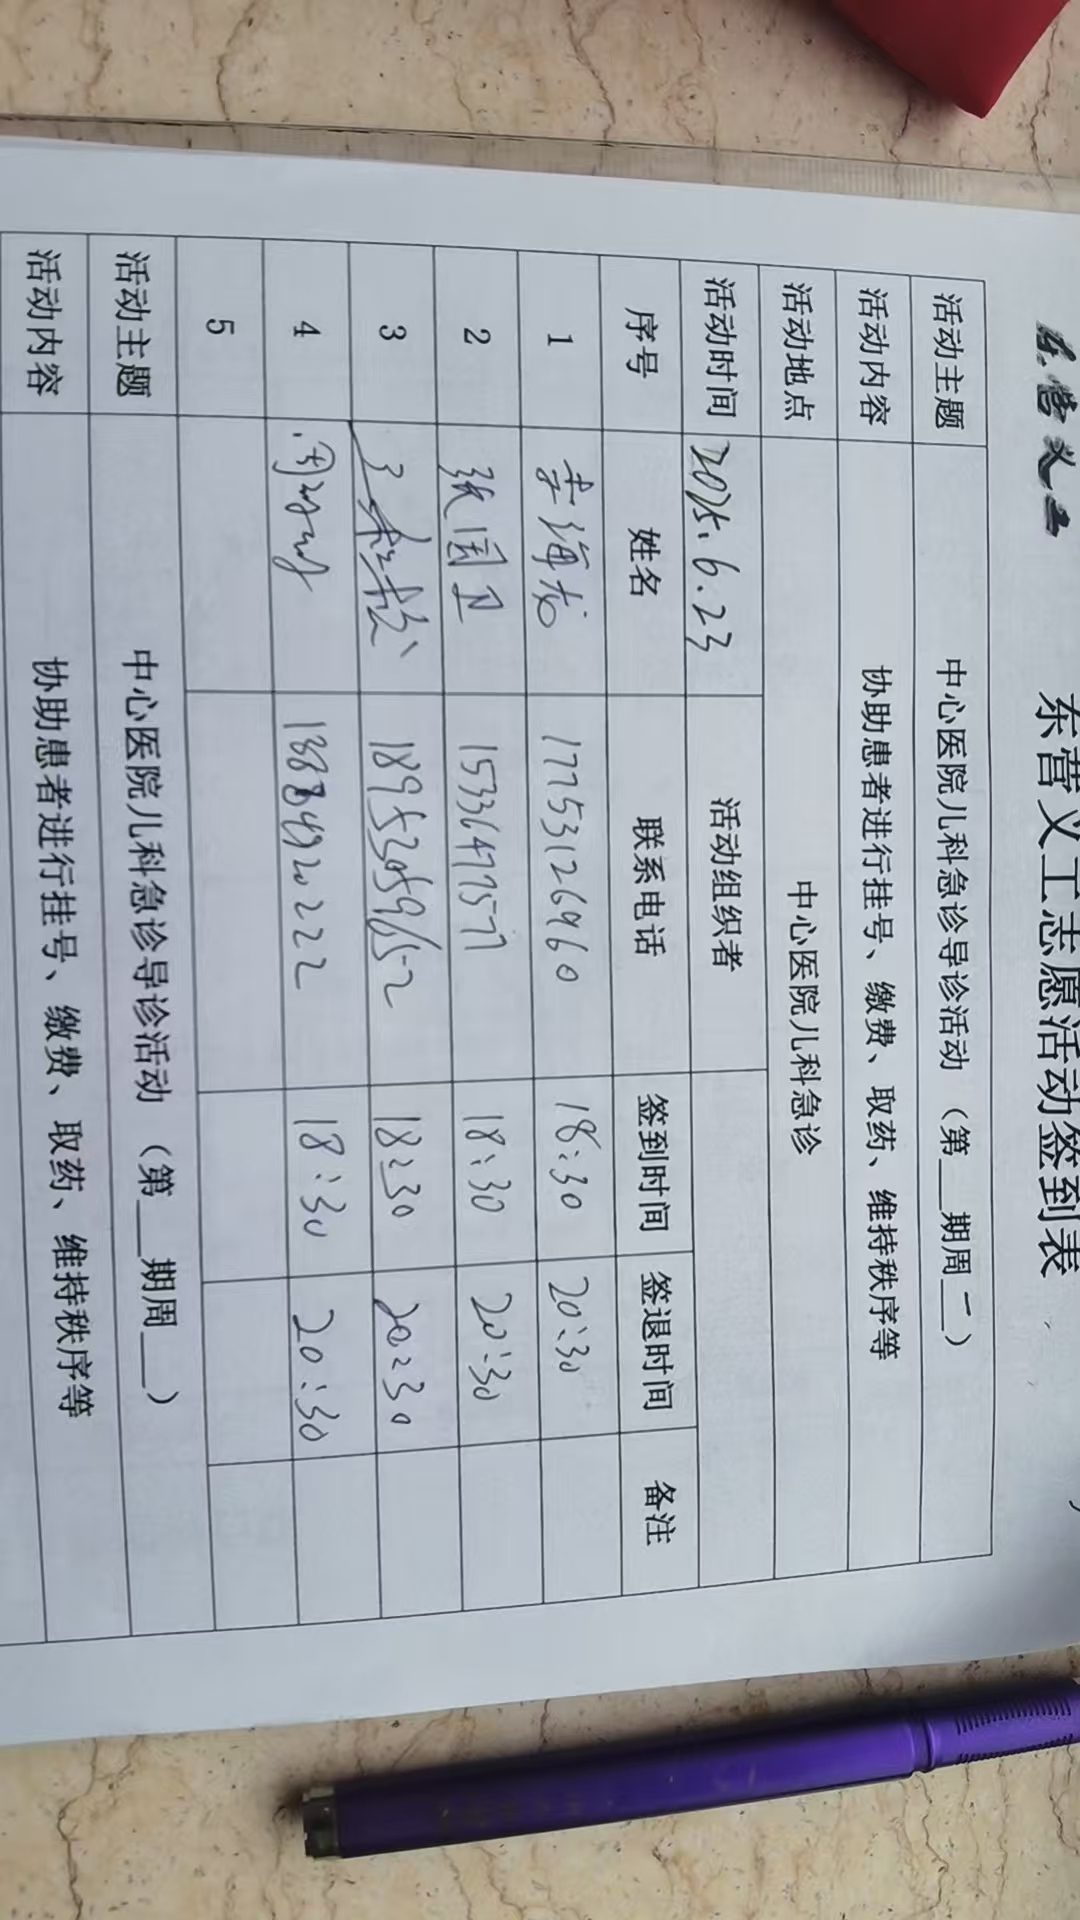 东营义工
东营义工志愿活动签到表
活动主题 中心医院儿科急诊导诊活动（第__期周二）
活动内容 协助患者进行挂号、缴费、取药、维持秩序等
活动地点 中心医院儿科急诊
活动时间 2025.6.23 活动组织者
序号 姓名 联系电话 签到时间 签退时间 备注
1 李海龙 17753126960 18:30 20:30
2 张国卫 15336477577 18:30 20:30
3 18953059652 18:30 20:30
4 13884920222 18:30 20:30
5
活动主题 中心医院儿科急诊导诊活动（第__期周__）
活动内容 协助患者进行挂号、缴费、取药、维持秩序等